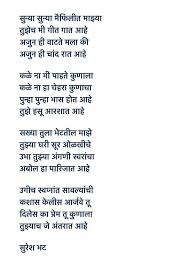 सुन्या सुन्या मैफिलीत माझ्या
तुझेच मी गीत गात आहे
अजुन ही वाटते मला की
अजुन ही चांद रात आहे
कळे ना मी पाहते कुणाला
कळे ना हा चेहरा कुणाचा
पुन्हा पुन्हा भास होत आहे
तुझे हसू आरशात आहे
सख्या तुला भेटतील माझे
तुझ्या घरी सूर ओळखीचे
उभा तुझ्या अंगणी स्वरांचा
अबोल हा पारिजात आहे
उगीच स्वप्नांत सावल्यांची
कशास केलीस आर्जवे तू
दिलेस का प्रेम तू कुणाला
तुझ्याच जे अंतरात आहे
सुरेश भट